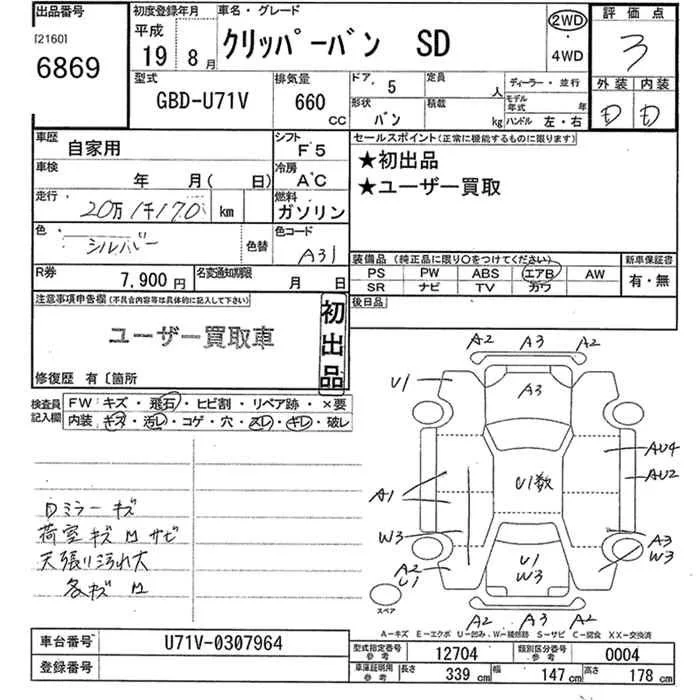 出品番号
[2160]
6869
初度登録年月
平成
19 8月
車名・グレード
クリッパーバン SD
2WD
・
4WD
評価点
3
外装 内装
D D
型式
GBD-U71V
排気量
660
CC
ドア 5
定員 人
ディーラー・並行
モデル年式 年
形状 バン
積載 kg
ハンドル 左・右
車歴
自家用
シフト
F5
車検
年 月( 日)
冷房
AC
走行
20万1千170 km
燃料
ガソリン
色
シルバー
色替
色コード
A31
R券
7,900円
名変通知期限
月 日
セールスポイント(正常に機能するものに限ります)
★初出品
★ユーザー買取
装備品(純正品に限り○をつけてください)
PS PW ABS エアB AW
SR ナビ TV カワ
新車保証書
有・無
後日品
注意事項申告欄(不具合内容等は具体的に記入して下さい)
ユーザー買取車
初出品
修復歴 有〔箇所
検査員
記入欄
FW: キズ・飛石・ヒビ割・リペア跡・×要
内装: キズ・汚レ・コゲ・穴・スレ・キレ・破レ
Dミラーキズ
荷室キズ凹サビ
天張り汚れ大
各キズ凹
A2 A3 A2
U1
A3
AU4
AU2
A1
U1数
W3
A3
W3
A2
U1
U1
W3
A2 A3 A2
スペア
A－キズ E－エクボ U－凹み W－補修跡 S－サビ C－腐食 XX－交換済
車台番号
U71V-0307964
登録番号
型式指定番号
参考
12704
類別区分番号
参考
0004
車庫証明用
参考
長さ 339 cm 幅 147 cm 高さ 178 cm